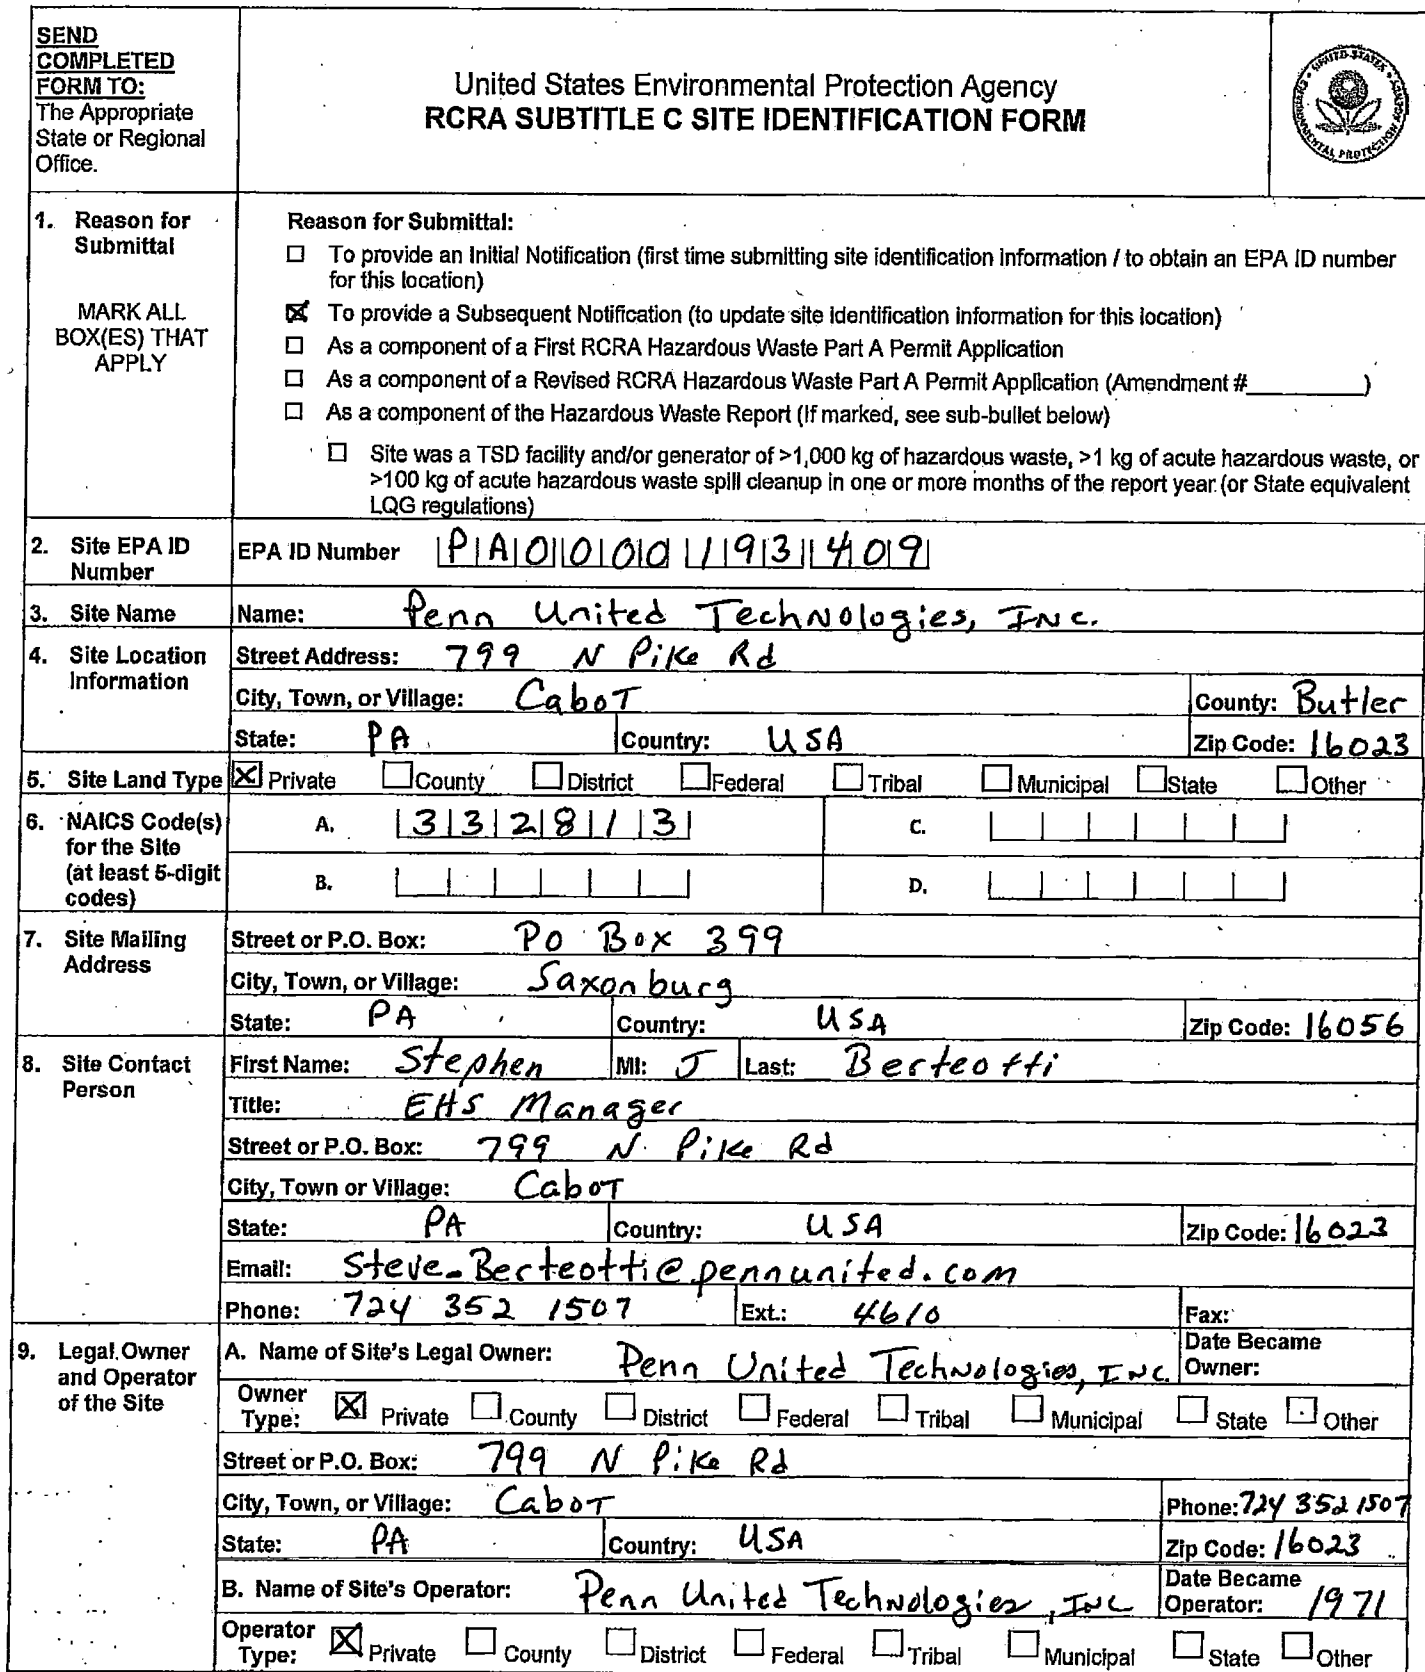 SEND
COMPLETED
FORM TO:
The Appropriate
State or Regional
Office.
United States Environmental Protection Agency
RCRA SUBTITLE C SITE IDENTIFICATION FORM
UNITED STATES ENVIRONMENTAL PROTECTION AGENCY
1. Reason for Submittal
MARK ALL BOX(ES) THAT APPLY
Reason for Submittal:
☐ To provide an Initial Notification (first time submitting site identification information / to obtain an EPA ID number
for this location)
☒ To provide a Subsequent Notification (to update site identification information for this location)
☐ As a component of a First RCRA Hazardous Waste Part A Permit Application
☐ As a component of a Revised RCRA Hazardous Waste Part A Permit Application (Amendment #________)
☐ As a component of the Hazardous Waste Report (If marked, see sub-bullet below)
☐ Site was a TSD facility and/or generator of >1,000 kg of hazardous waste, >1 kg of acute hazardous waste, or
>100 kg of acute hazardous waste spill cleanup in one or more months of the report year (or State equivalent
LQG regulations)
2. Site EPA ID Number
EPA ID Number PA0000193409
3. Site Name
Name: Penn United Technologies, INC.
4. Site Location Information
Street Address: 799 N Pike Rd
City, Town, or Village: Cabot County: Butler
State: PA Country: USA Zip Code: 16023
5. Site Land Type ☒ Private ☐ County ☐ District ☐ Federal ☐ Tribal ☐ Municipal ☐ State ☐ Other
6. NAICS Code(s) for the Site (at least 5-digit codes)
A. 332813 C.
B. D.
7. Site Mailing Address
Street or P.O. Box: PO Box 399
City, Town, or Village: Saxonburg
State: PA Country: USA Zip Code: 16056
8. Site Contact Person
First Name: Stephen MI: J Last: Berteotti
Title: EHS Manager
Street or P.O. Box: 799 N Pike Rd
City, Town or Village: Cabot
State: PA Country: USA Zip Code: 16023
Email: Steve_Berteotti@pennunited.com
Phone: 724 352 1507 Ext.: 4610 Fax:
9. Legal Owner and Operator of the Site
A. Name of Site's Legal Owner: Penn United Technologies, INC. Date Became Owner:
Owner Type: ☒ Private ☐ County ☐ District ☐ Federal ☐ Tribal ☐ Municipal ☐ State ☐ Other
Street or P.O. Box: 799 N Pike Rd
City, Town, or Village: Cabot Phone: 724 352 1507
State: PA Country: USA Zip Code: 16023
B. Name of Site's Operator: Penn United Technologies, INC Date Became Operator: 1971
Operator Type: ☒ Private ☐ County ☐ District ☐ Federal ☐ Tribal ☐ Municipal ☐ State ☐ Other